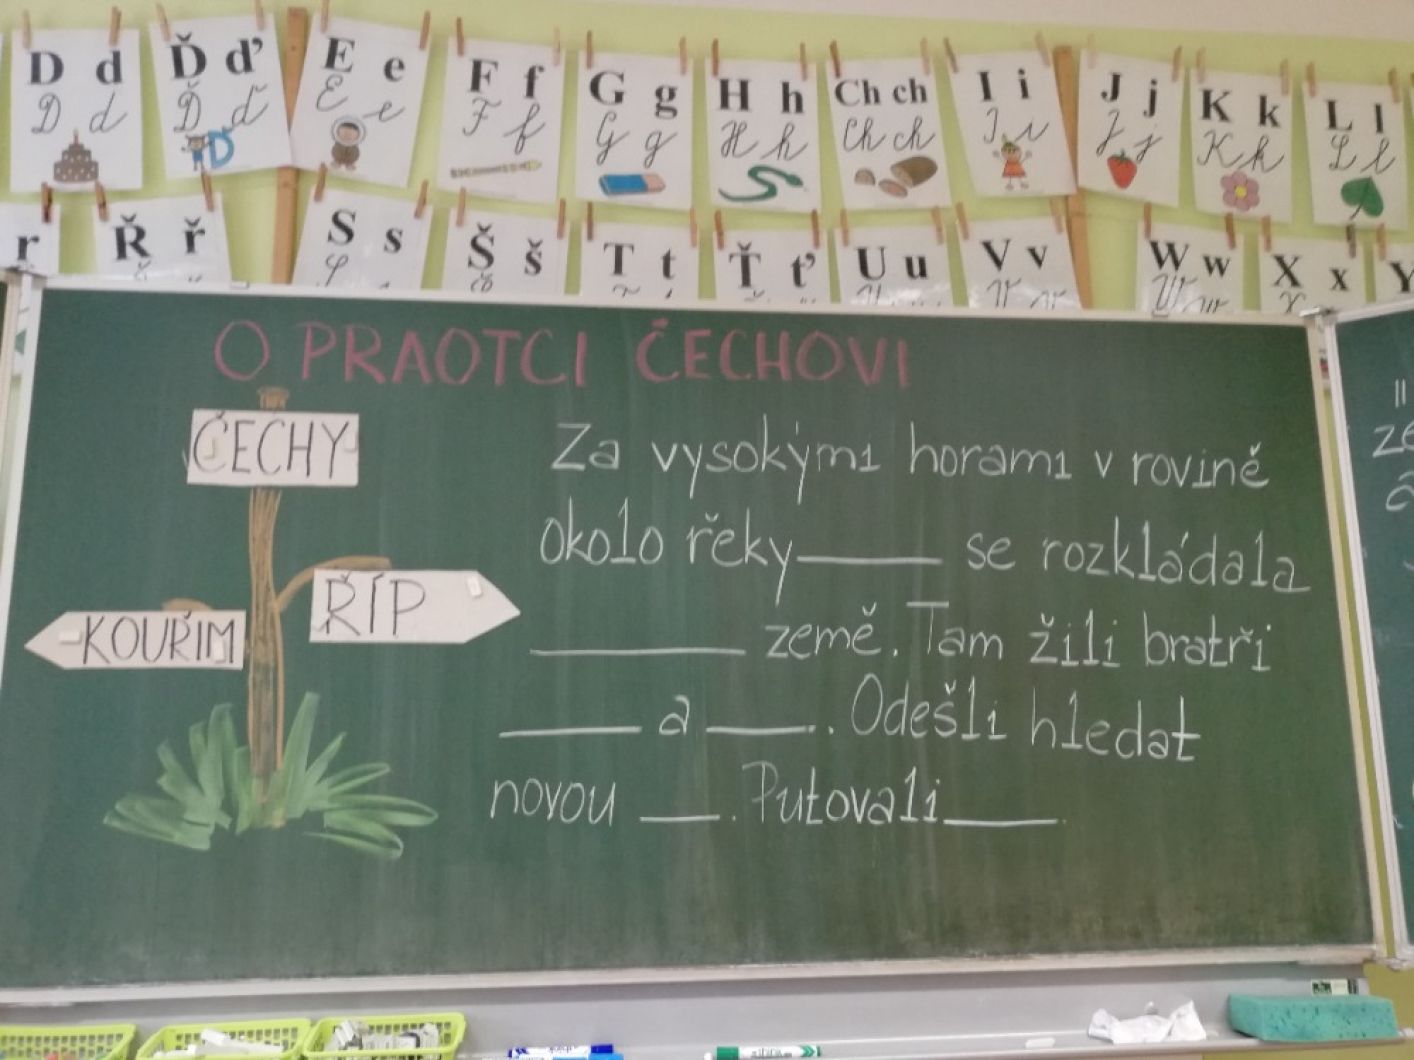 D d Ď ď E e F f G g H h Ch ch I i J j K k L l
D d Ď ď E e F f G g H h Ch ch I i J j K k L l
r Ř ř S s Š š T t Ť ť U u V v W w X x Y
O PRAOTCI ČECHOVI
ČECHY
KOUŘIM
ŘÍP
Za vysokými horami v rovině
okolo řeky_____ se rozkládala
_______ země. Tam žili bratři
_____ a ____. Odešli hledat
novou ___. Putovali____.